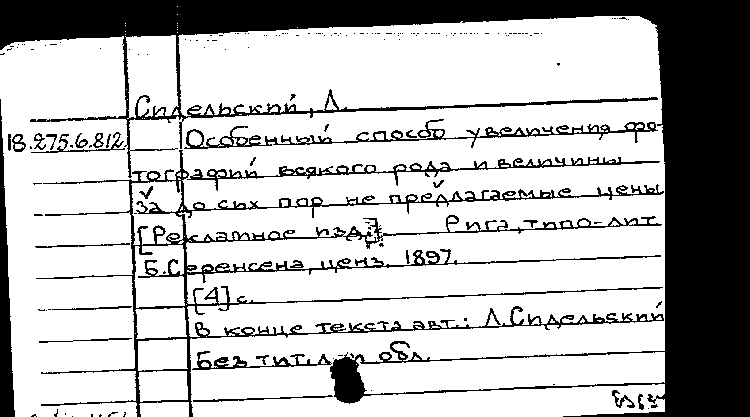 Сидельский, Л.
18.275.6.812 Особенный способ увеличения фо-
тографий всякого рода и величины
за до сих пор не предлагаемые цены
[Рекламное изд.] Рига, типо-лит.
Б. Серенсена, ценз. 1897.
[4] с.
В конце текста авт.: Л. Сидельский
Без тит. л. и обл.